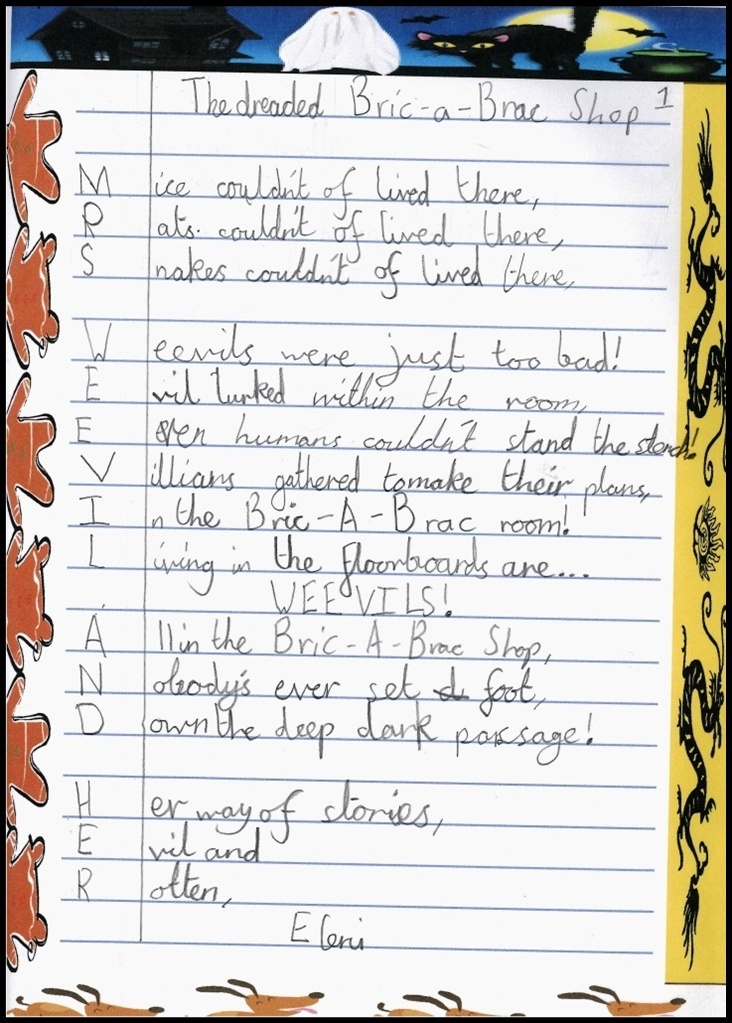 The dreaded Bric-a-Brac Shop 1
Mice couldn't of lived there,
Rats couldn't of lived there,
Snakes couldn't of lived there,
Weevils were just too bad!
Evil lurked within the room,
Even humans couldn't stand the stench!
Villians gathered to make their plans,
In the Bric-A-Brac room!
Living in the floorboards are...
WEEVILS!
All in the Bric-A-Brac Shop,
Nobody's ever set foot,
Down the deep dark passage!
Her way of stories,
Evil and
Rotten,
Eleni